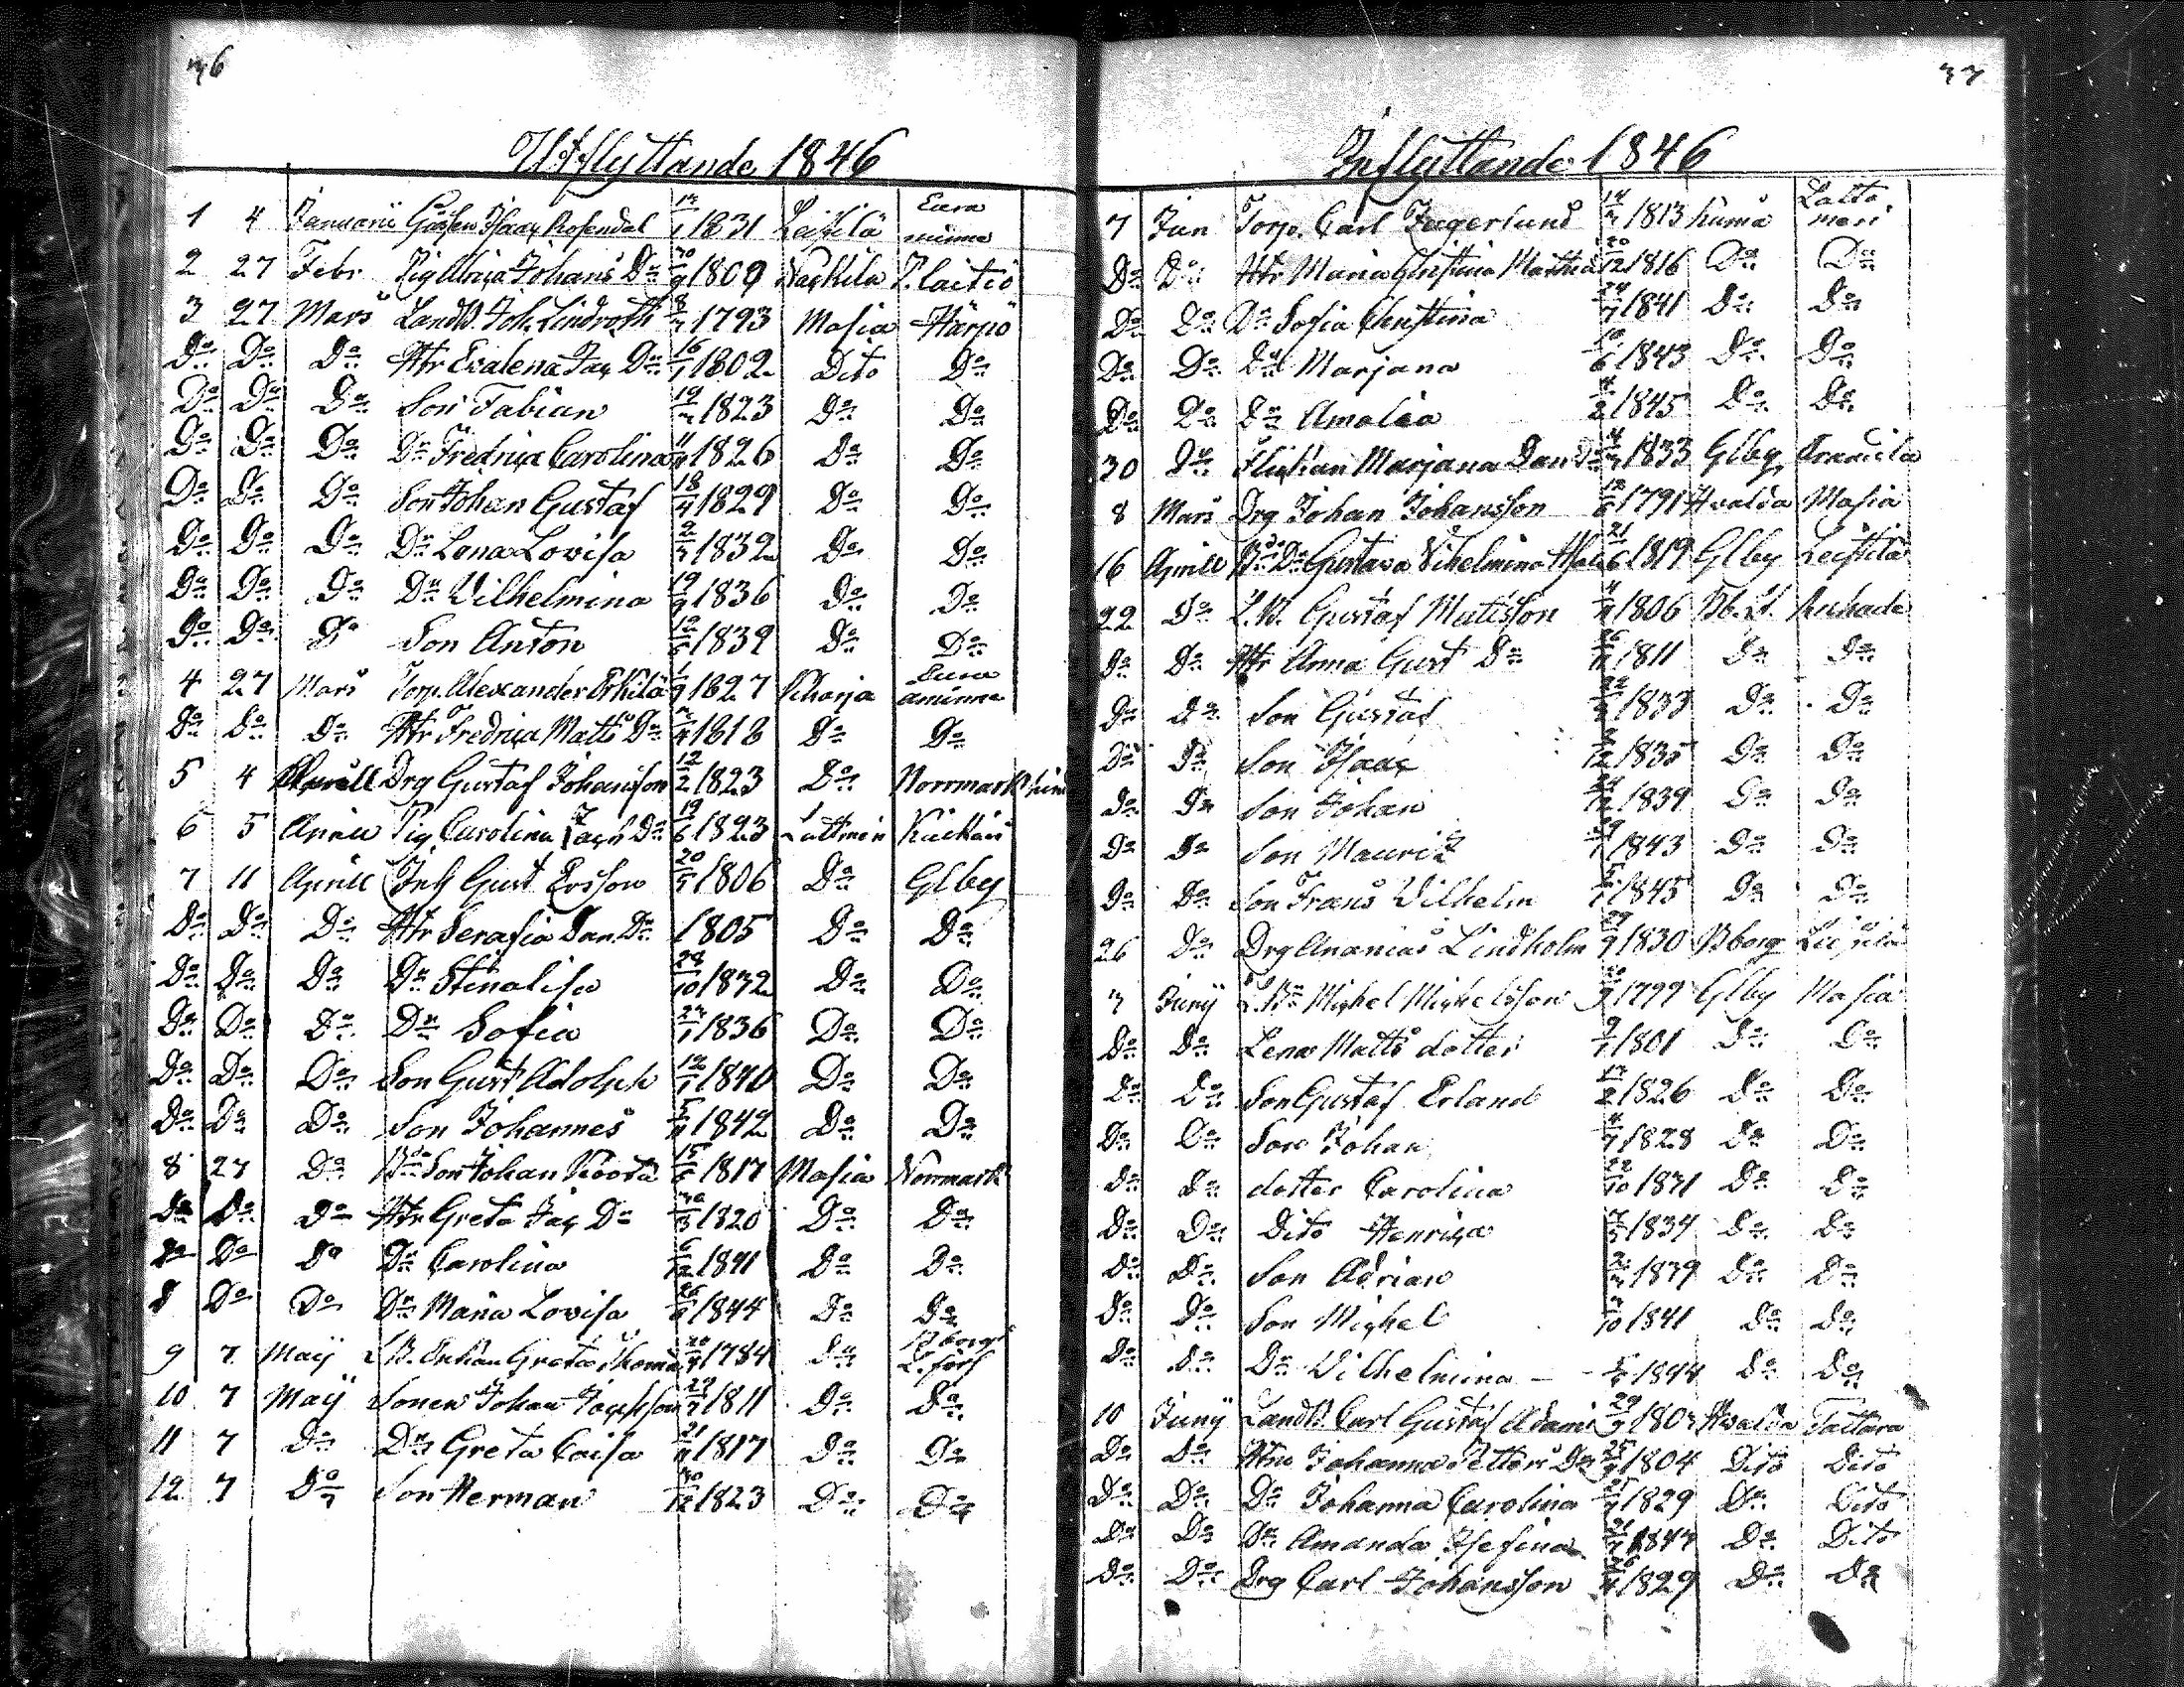 36
Utflyttande 1846
1 4 Januarii Gåssen Isaac Rosendal 1831 Leistilä Eura minne
2 27 Febr Pig Ulrica Johans Dr 1809
3 27 Mars LandB. Joh. Lindroth 8 1793 Masia Harjo
Do Do Do Htr Evalena Jac Dr 16/1 1802 Dito Do
Do Do Do Son Fabian 19 1823 Do Do
Do Do Do Dr Fredrica Carolina 1826 Do Do
Do Do Do Son Johan Gustaf 18/4 1829 Do Do
Do Do Do Dr Lena Lovisa 1832 Do Do
Do Do Do Dr Vilhelmina 19/9 1836 Do Do
Do Do Do Son Anton 1839 Do Do
4 27 Mars Torp. Alexander Erkilä 1827 Eura aminne
Do Do Do Htr Fredrica Matts Dr 1818 Do Do
5 4 Aprill Drg Gustaf Johansson 12/2 1823 Do Norrmark
6 5 Aprill Pig Carolina Jacs Dr 19/6 1823
7 11 Aprill Inh Gust Ersson 20 1806 Do Glby
Do Do Do Htr Serafia Dan. Dr 1805 Do Do
Do Do Do Dr Stinalisa 28/10 1832 Do Do
Do Do Do Dr Sofia 1836 Do Do
Do Do Do Son Gust Adolph 12/1 1840 Do Do
Do Do Do Son Johannes 1842 Do Do
8 27 Do Bo Son Johan 15 1817 Masia Norrmark
Do Do Do Htr Greta Jac Dr 1820 Do Do
Do Do Do Dr Carolina 6/12 1841 Do Do
8 Do Do Dr Maria Lovisa 1844 Do Do
9 7 Maij Enkan Greta Thomas 1784 Do Bborgs L. förs
10 7 Maij Sonen Johan Jacksson 1811 Do Do
11 7 Do Dr Greta Caisa 21 1817 Do Do
12 7 Do Son Herman 1823 Do Do
37
Inflyttande 1846
7 Jan Torp. Carl Jegerlund 14 1813 Kumå Latto meri
Do Do Htr Maria Christina Matts 20/12 1816 Do Do
Do Do Dr Sofia Christina 1841 Do Do
Do Do Dr Marjana 1843 Do Do
Do Do Dr Amalia 1845 Do Do
30 Do Flickan Marjana Dan Dr 1833 Glby
8 Mars Drg Johan Johansson 1791 Hvalda Masia
16 Aprill Gustava Vilhelmina 21/6 1819 Glby Leistilä
22 Do L.B. Gustaf Mattsson 1806
Do Do Htr Anna Gust Dr 1811 Do Do
Do Do Son Gustaf 1833 Do Do
Do Do Son Isaac 1835 Do Do
Do Do Son Johan 1839 Do Do
Do Do Son Mauritz 1843 Do Do
Do Do Son Frans Vilhelm 1845 Do Do
26 Do Drg Ananias Lindholm 1830 Bborg Leistilä
3 Junij L.B. Michel Michelsson 1799 Glby Masia
Do Do Lena Matts dotter 1801 Do Do
Do Do Son Gustaf Erland 1826 Do Do
Do Do Son Johan 1828 Do Do
Do Do dotter Carolina 1831 Do Do
Do Do Dito Henrica 1834 Do Do
Do Do Son Adrian 1839 Do Do
Do Do Son Michel 1841 Do Do
Do Do Dr Vilhelmina 1844 Do Do
10 Junij LandB. Carl Gustaf Adams 29 Hvalda Tattara
Do Do Htr Johanna Petters Dr 1804 Dito Dito
Do Do Dr Johanna Carolina 1829 Do Dito
Do Do Dr Amanda Josefina Do Dito
Do Do Drg Carl Johansson 1829 Do Do